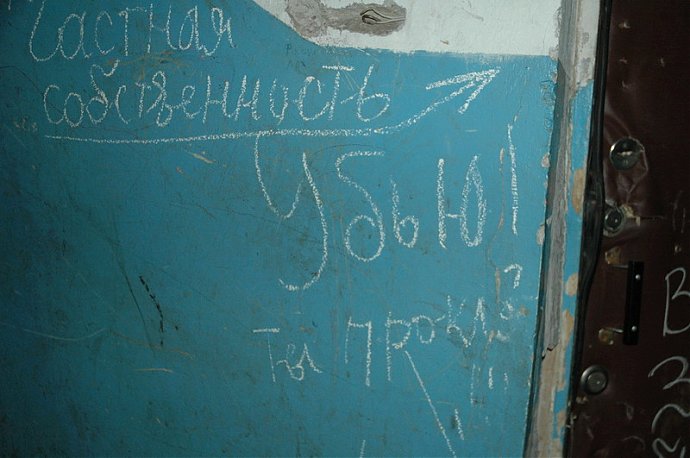 Частная
собственность
Убью!
Ты
В